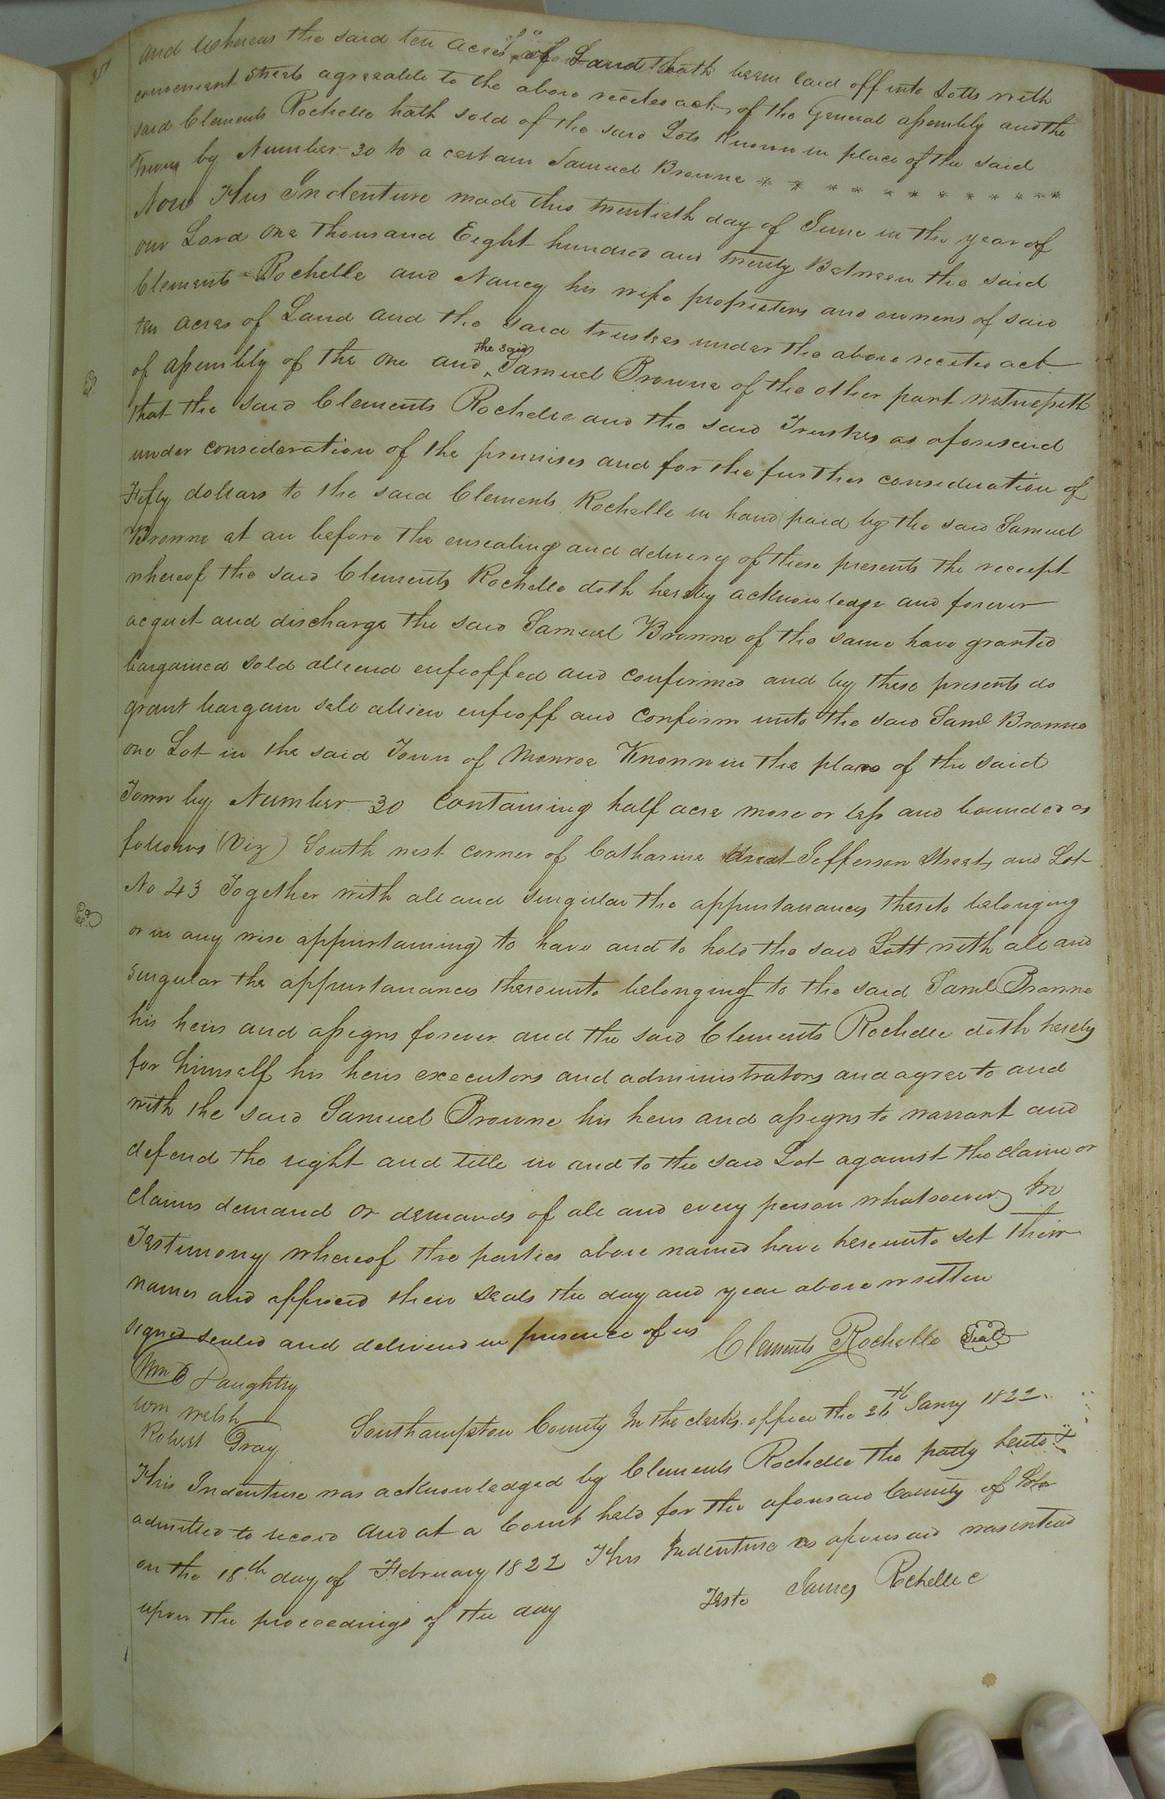 and whereas the said ten acres of Land hath been laid off into Lotts with
convenient streets agreeable to the above recited act of the General assembly and the
said Clements Rochelle hath sold of the said Lots Known in place of the said
Town by Number 30 to a certain Samuel Browne * * * * * * * * * * * *
Now This Indenture made this twentieth day of June in the year of
our Lord One thousand Eight hundred and twenty Between the said
Clements Rochelle and Nancy his wife proprietors and owners of said
ten acres of Land and the said trustees under the above recited act
of assembly of the one and the said Samuel Browne of the other part witnesseth
that the said Clements Rochelle and the said Trustees as aforesaid
under consideration of the premises and for the further consideration of
Fifty dollars to the said Clements Rochelle in hand paid by the said Samuel
Browne at an before the ensealing and delivery of these presents the receipt
whereof the said Clements Rochelle doth hereby acknowledge and forever
acquet and discharge the said Samuel Browne of the same have granted
bargained sold aliend enfeoffed and confirmed and by these presents do
grant bargain sell alien enfeoff and confirm unto the said Saml Browne
one Lot in the said Town of Monroe Known in the plan of the said
Town by Number 30 containing half acre more or less and bounded as
follows (Viz) South west corner of Catharine and Jefferson Streets and Lot
No 43 Together with all and singular the appurtanances thereto belonging
or in any wise appurtaining to have and to hold the said Lott with all and
singular the appurtanances thereunto belonging to the said Saml Browne
his heirs and assigns forever and the said Clements Rochelle doth hereby
for himself his heirs executors and administrators and agree to and
with the said Samuel Browne his heirs and assigns to warrant and
defend the right and title in and to the said Lot against the claim or
claims demand or demands of all and every person whatsoever In
Testimony whereof the parties above named have hereunto set their
names and affixed their Seals the day and year above written
signed sealed and delivered in presence of us Clements Rochelle Seal
Wm B Daughtry
Wm Welsh
Robert Gray
Southampton County In the clerks office the 26th Janry 1822
This Indenture was acknowledged by Clements Rochelle the party hereto &
admitted to record And at a Court held for the aforesaid County of
on the 18th day of February 1822 This Indenture as aforesaid was entered
upon the proceedings of the day
Teste James Rochelle C